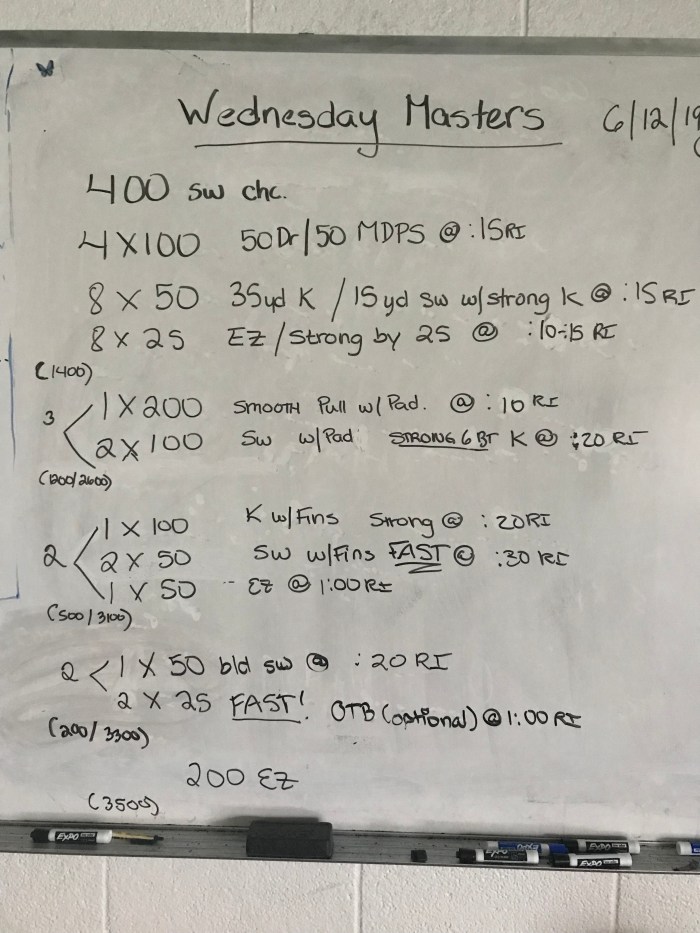 Wednesday Masters 6/12/19
400 sw chc.
4X100 50Dr/50 MDPS @ :15RI
8 x 50 35yd K / 15yd sw w/strong K @ :15 RI
8 x 25 EZ/Strong by 25 @ :10-:15 RI
(1400)
3 < 1X200 SMOOTH Pull w/Pad. @ :10 RI
2X100 SW w/Pad STRONG 6 BT K @ :20 RI
(1200/2600)
2 < 1 X 100 K w/Fins Strong @ :20RI
2 X 50 SW w/Fins FAST @ :30 RI
1 X 50 -- EZ @ 1:00 RI
(500/3100)
2 < 1 X 50 bld sw @ :20 RI
2 X 25 FAST! OTB (optional) @ 1:00 RI
(200/3300)
200 EZ
(3500)
EXPO
EXPO
EXPO
EXPO